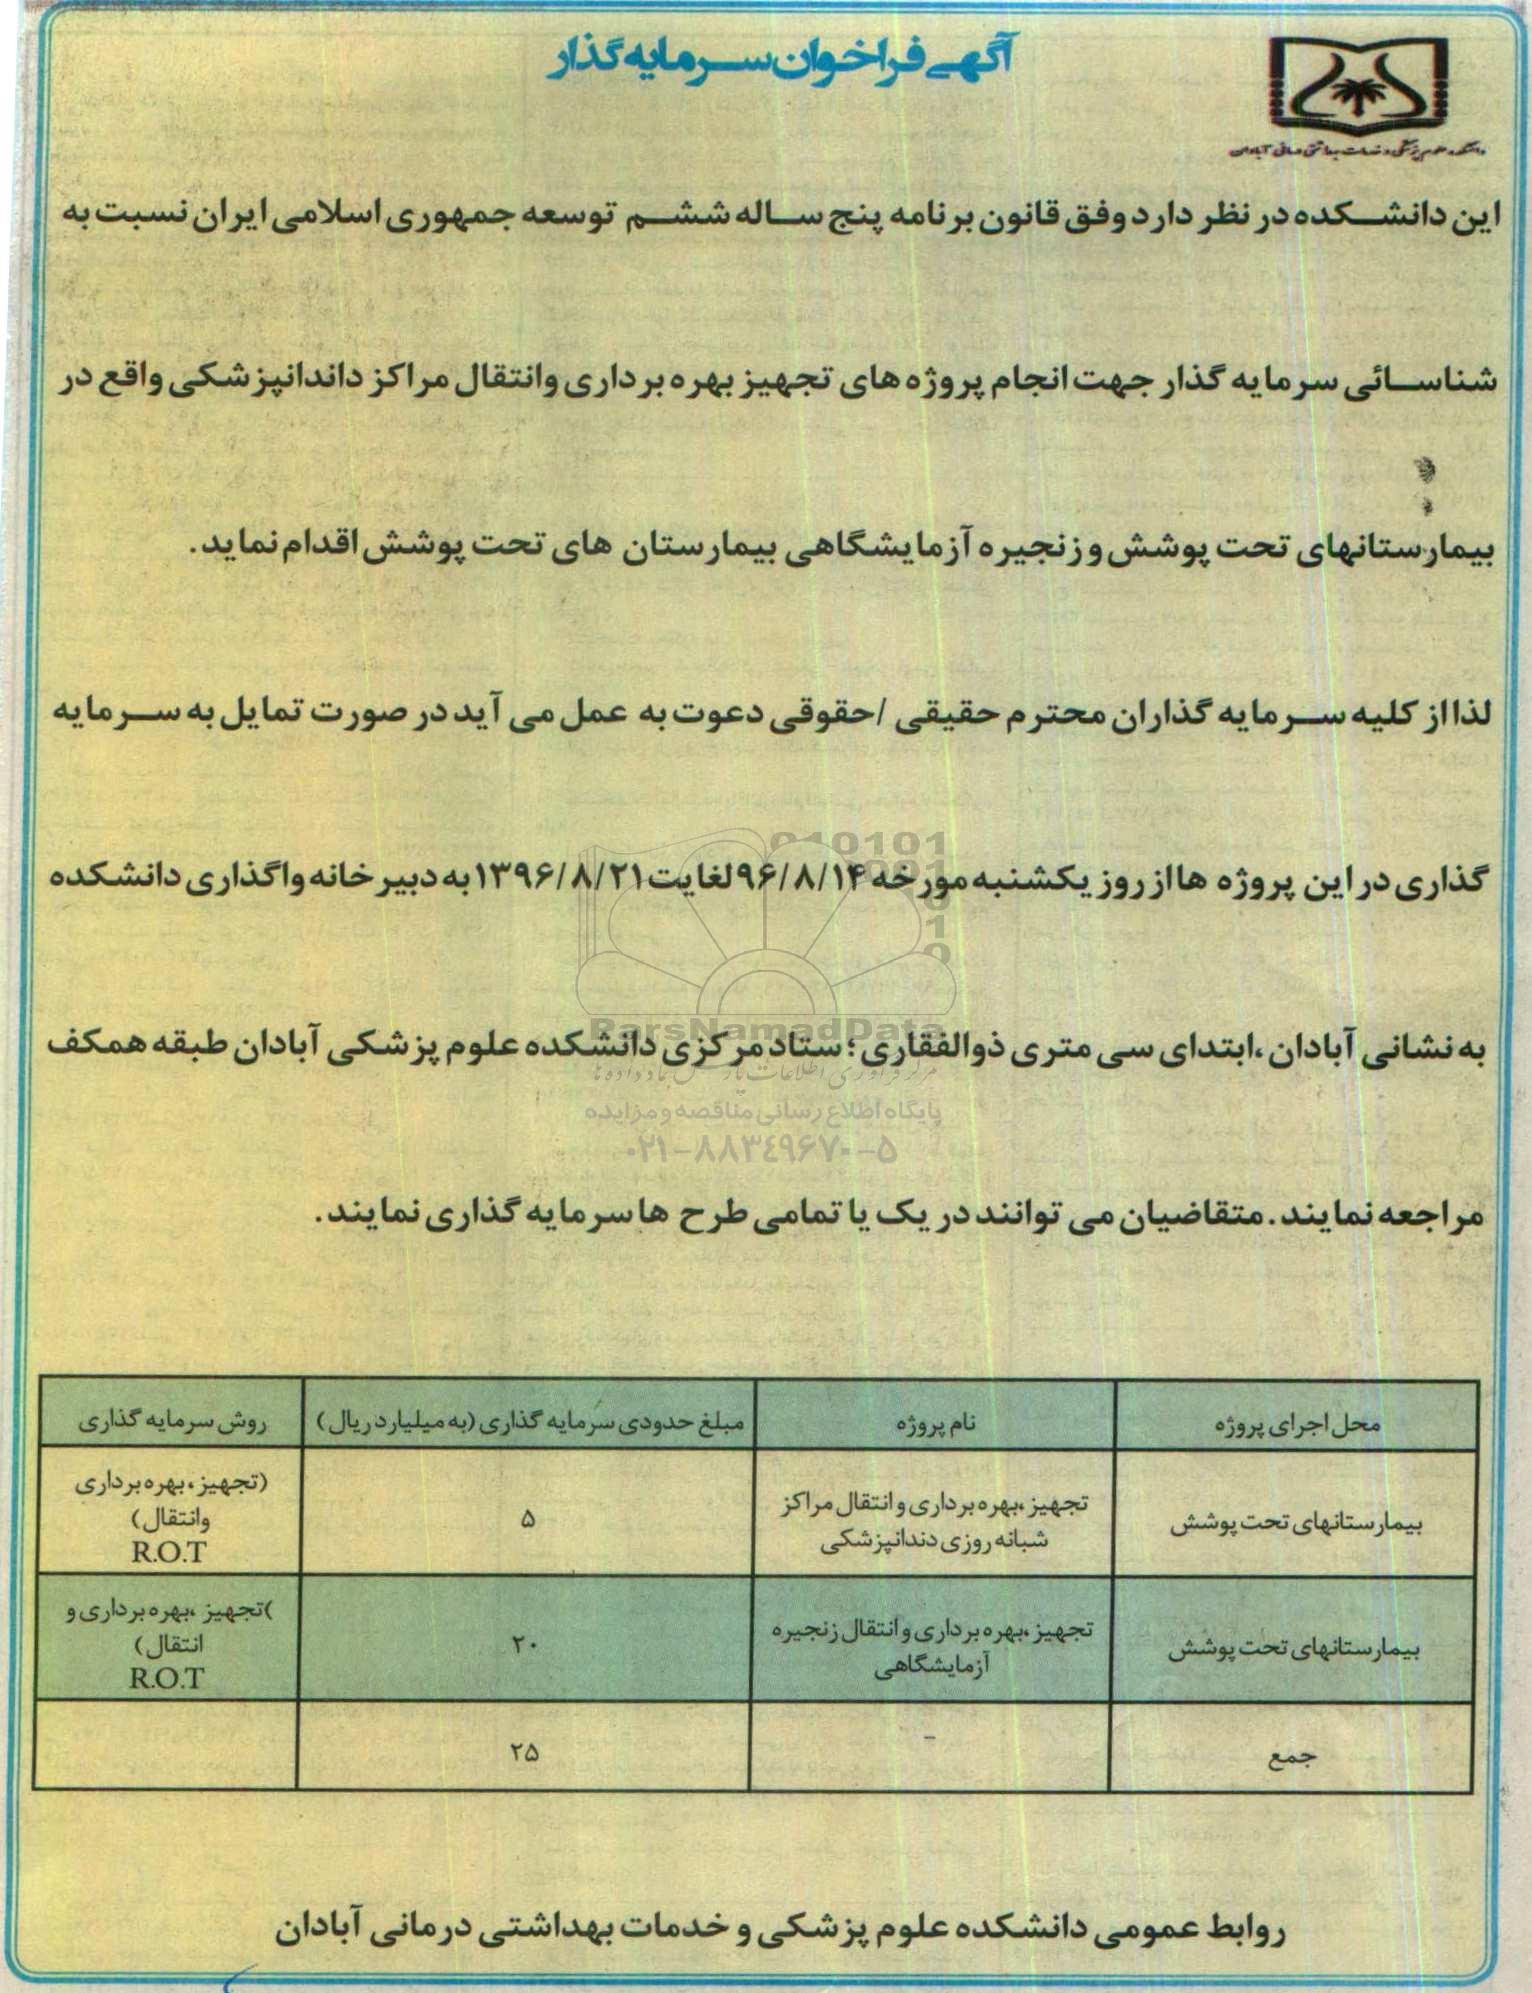 آگهی فراخوان سرمایه گذار
دانشکده علوم پزشکی و خدمات بهداشتی درمانی آبادان
این دانشکده در نظر دارد وفق قانون برنامه پنج ساله ششم توسعه جمهوری اسلامی ایران نسبت به
شناسائی سرمایه گذار جهت انجام پروژه های تجهیز بهره برداری وانتقال مراکز داندانپزشکی واقع در
بیمارستانهای تحت پوشش و زنجیره آزمایشگاهی بیمارستان های تحت پوشش اقدام نماید.
لذا از کلیه سرمایه گذاران محترم حقیقی /حقوقی دعوت به عمل می آید در صورت تمایل به سرمایه
گذاری در این پروژه ها از روز یکشنبه مورخه ۹۶/۸/۱۴ لغایت ۱۳۹۶/۸/۲۱ به دبیرخانه واگذاری دانشکده
به نشانی آبادان ،ابتدای سی متری ذوالفقاری؛ ستاد مرکزی دانشکده علوم پزشکی آبادان طبقه همکف
مراجعه نمایند. متقاضیان می توانند در یک یا تمامی طرح ها سرمایه گذاری نمایند.
ParsNamadData
مرکز فرآوری اطلاعات پارس نماد داده ها
پایگاه اطلاع رسانی مناقصه و مزایده
۰۲۱-۸۸۳۴۹۶۷۰-۵
محل اجرای پروژه	نام پروژه	مبلغ حدودی سرمایه گذاری (به میلیارد ریال)	روش سرمایه گذاری
بیمارستانهای تحت پوشش
تجهیز ،بهره برداری و انتقال مراکز
شبانه روزی دندانپزشکی
۵
(تجهیز ، بهره برداری
وانتقال)
R.O.T
بیمارستانهای تحت پوشش
تجهیز ،بهره برداری و انتقال زنجیره
آزمایشگاهی
۲۰
)تجهیز ،بهره برداری و
انتقال)
R.O.T
جمع	-	۲۵
روابط عمومی دانشکده علوم پزشکی و خدمات بهداشتی درمانی آبادان